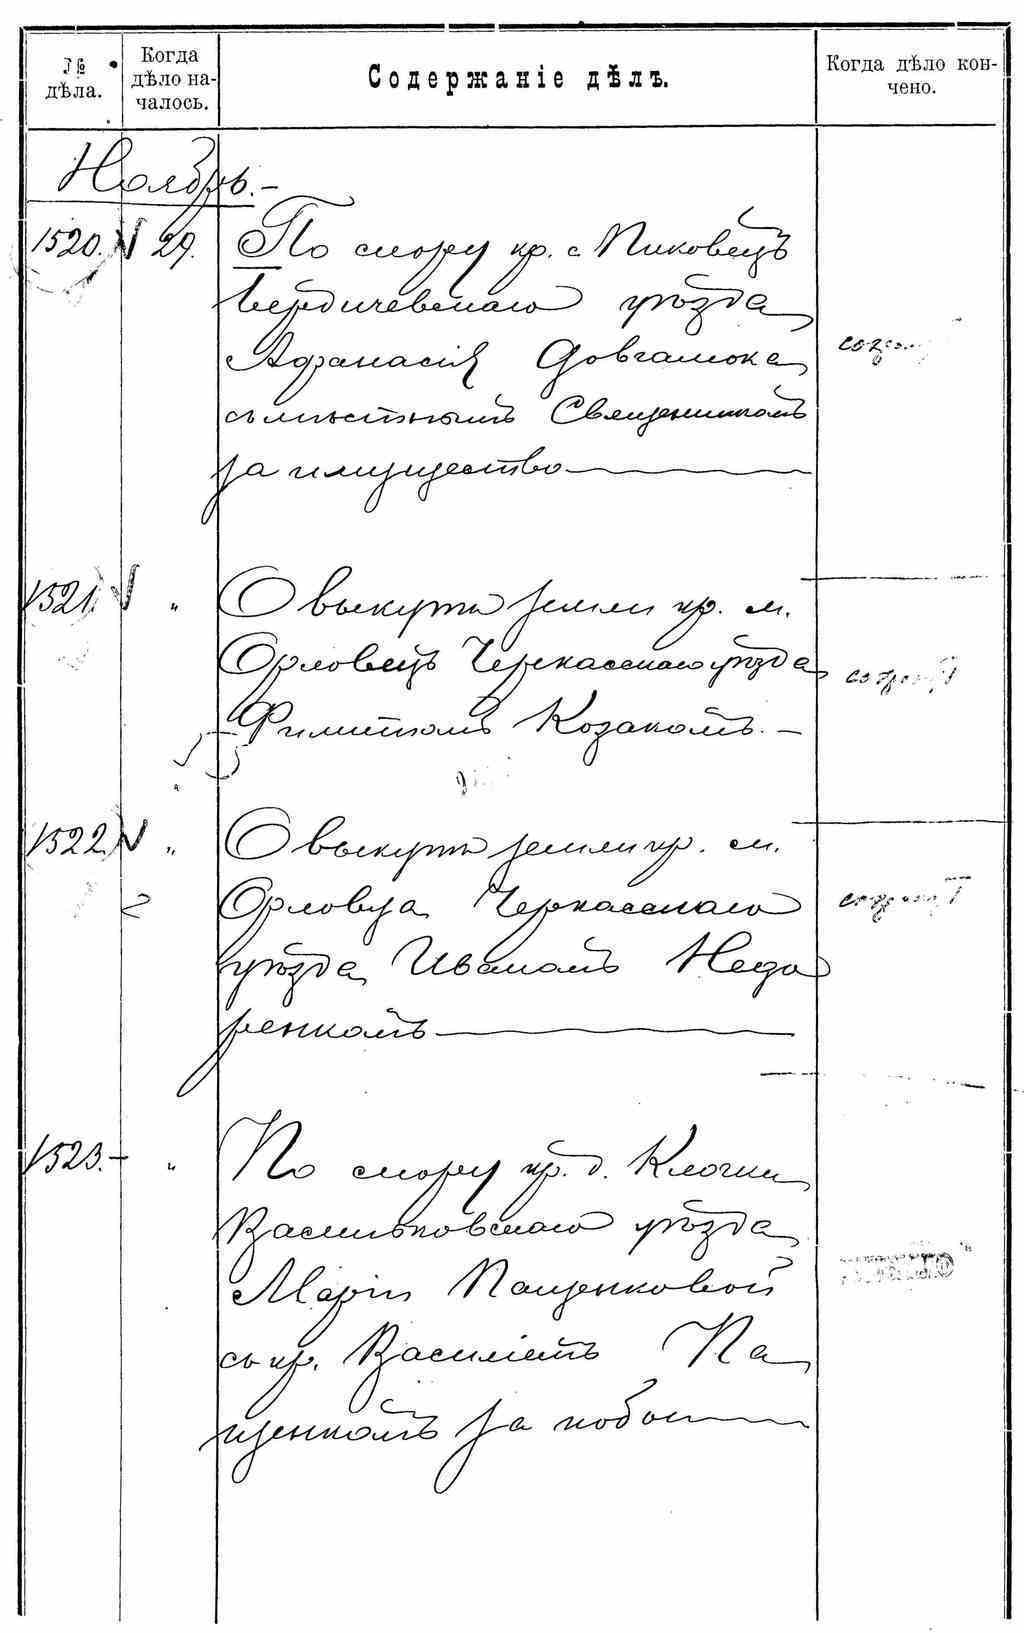 № дѣла.
Когда дѣло на-
чалось.
Содержаніе дѣлъ.
Когда дѣло кон-
чено.
Ноябрь.-
1520. 29. По спору кр. с. Пиковецъ
Бердичевскаго уѣзда
Афанасія Довгалюка
съ мѣстнымъ Священникомъ
за имущество
1521. " О выкупѣ земли кр. м.
Орловецъ Черкасскаго уѣзда
Филипомъ Козакомъ. -
1522. " О выкупѣ земли кр. м.
Орловца Черкасскаго
уѣзда Иваномъ Недо
ренкомъ
1523. - " По спору кр. д. Клочки
Васильковскаго уѣзда
Маріи Пащенковой
съ кр. Василіемъ Па
щенкомъ за побои